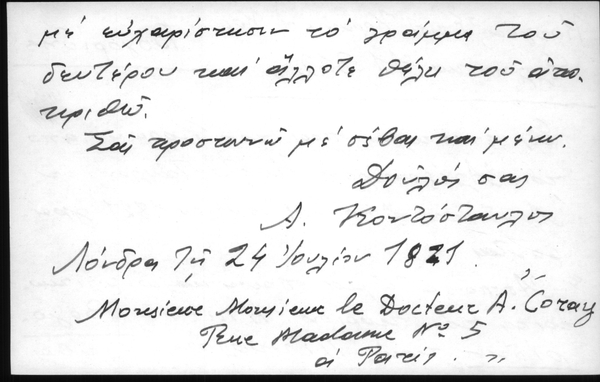 μέ εὐχαρίστησιν τό γράμμα τοῦ
δευτέρου καί ἄλλοτε θέλω τοῦ ἀπο-
κριθῶ.
Σᾶς προσκυνῶ μέ σέβας καί μένω.
Δοῦλός σας
Α. Κοντόσταυλος
Λόνδρα τῇ 24 Ἰουλίου 1821.
Monsieur Monsieur le Docteur A. Coray
Rue Madame No 5
à Paris. "